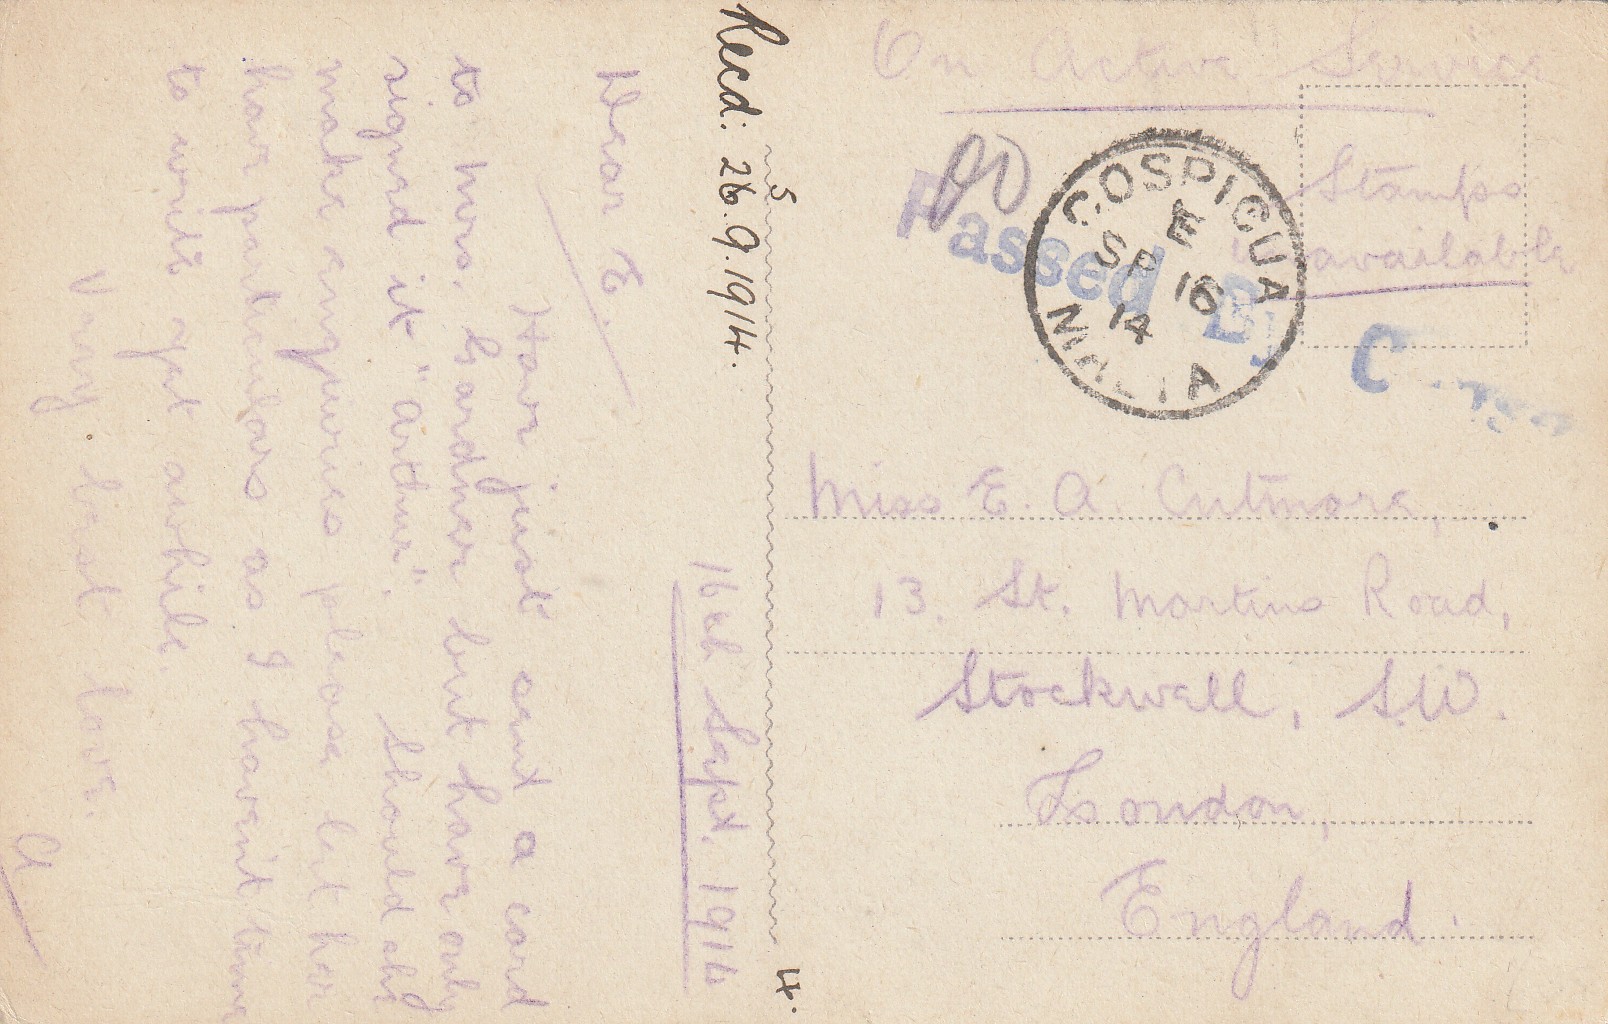 Recd: 26.9.1914.
5
4.
16th Sept. 1914
Dear E.
Have just sent a card
to Mrs. Gardner but have only
signed it "Arthur". Should she
make enquiries please let her
have particulars as I havent time
to write yet awhile.
Very best love.
A
On Active Service
Stamps
unavailable
Passed By C
COSPICUA
E
SP 16
14
MALTA
Miss E. A. Cutmore,
13, St. Martins Road,
Stockwell, S.W.
London,
England.